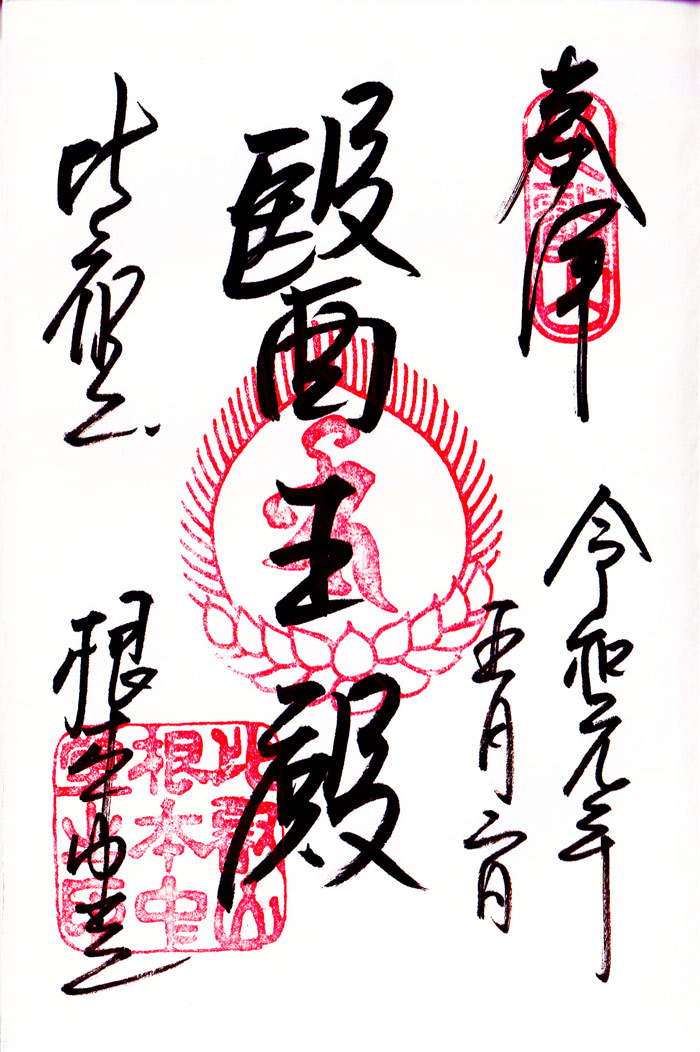 奉拝
令和元年
五月二日
醫王殿
比叡山
根本中堂
比叡山
根本中
堂之印